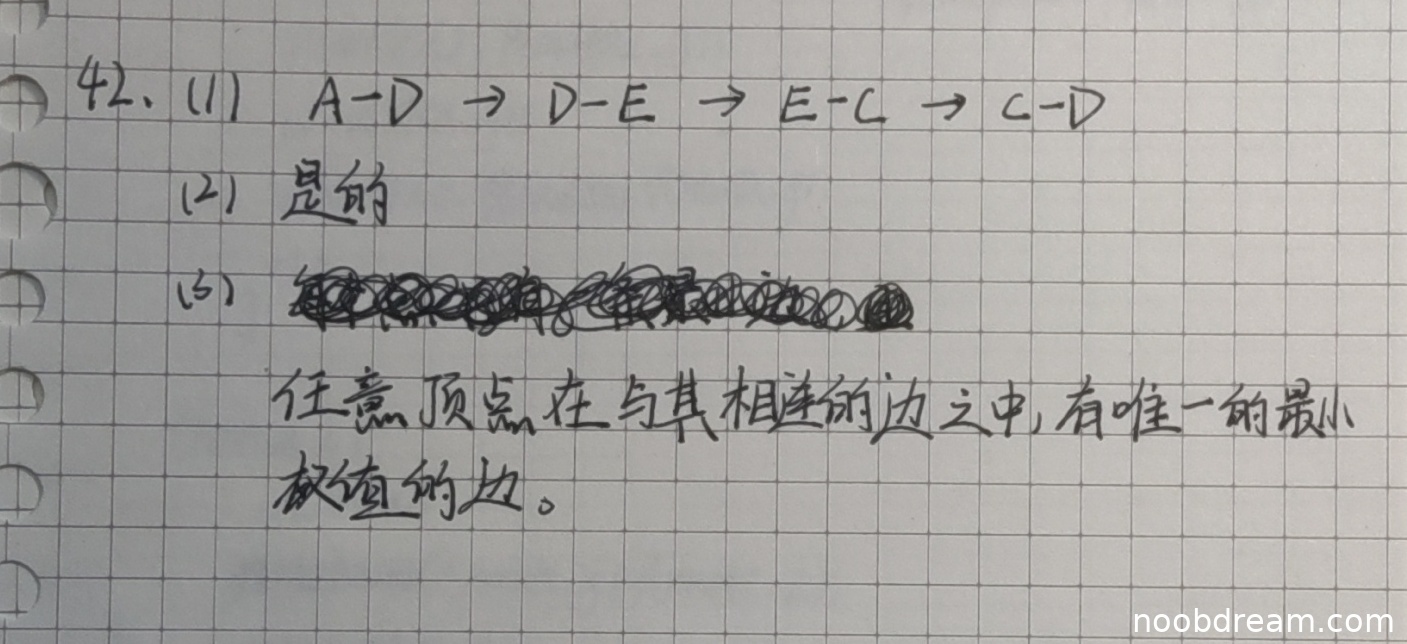 42. (1) A-D → D-E → E-C → C-D
(2) 是的
(3)
任意顶点在与其相连的边之中,有唯一的最小
权值的边。
noobdream.com